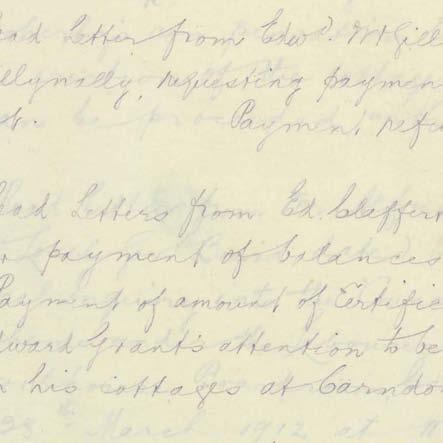 ead Letter from Edwd. McGill
llynally, requesting paymen
t. Payment refu
ead Letters from Ed. Claffert
r payment of balances
Payment of amount of Certifie
dward Grant's attention to be
n his cottage at Carndo
23rd March 1912 at